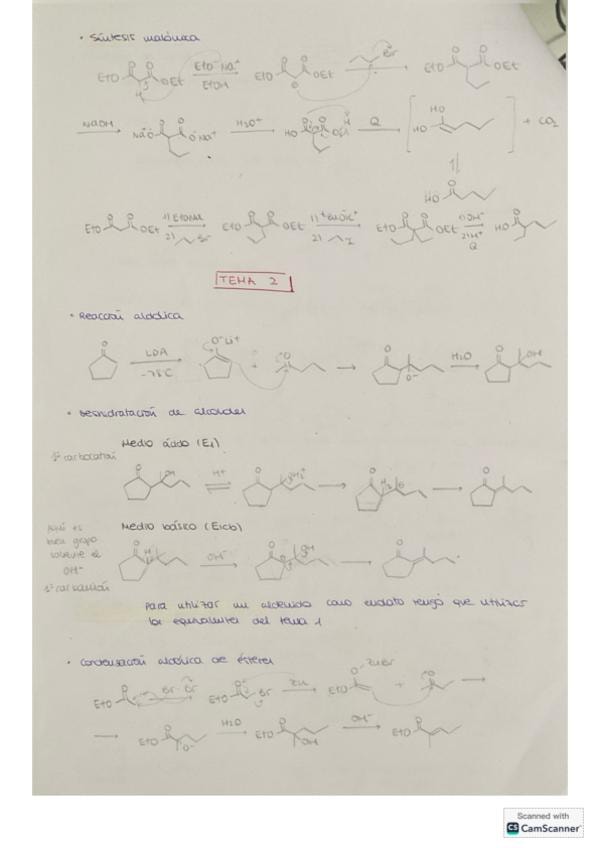 • Síntesis malónica
EtO OEt EtO⁻Na⁺ EtOH EtO OEt Br EtO OEt
H
NaOH Na⁺O⁻ O⁻Na⁺ H₃O⁺ HO Q HO HO + CO₂
HO
EtO OEt 1) EtONa 2) Br EtO OEt 1) 2) I EtO OEt 1) OH⁻ 2) H⁺ Q HO
TEMA 2
• Reacción aldólica
O⁻Li⁺
LDA -78°C + O O⁻ H₂O OH
• Deshidratación de alcoholes
Medio ácido (E1)
1º carbocatión
OH H⁺ OH₂⁺
Medio básico (E1cb)
Aquí es buen grupo saliente el OH⁻
1º carbanión
H OH⁻ OH
Para utilizar un aldehído como enolato tengo que utilizar
los equivalentes del tema 1
• Condensación aldólica de ésteres
EtO Br-Br EtO Br Zn EtO O-ZnBr +
EtO O⁻ H₂O EtO OH OH⁻ EtO
Scanned with
CS CamScanner